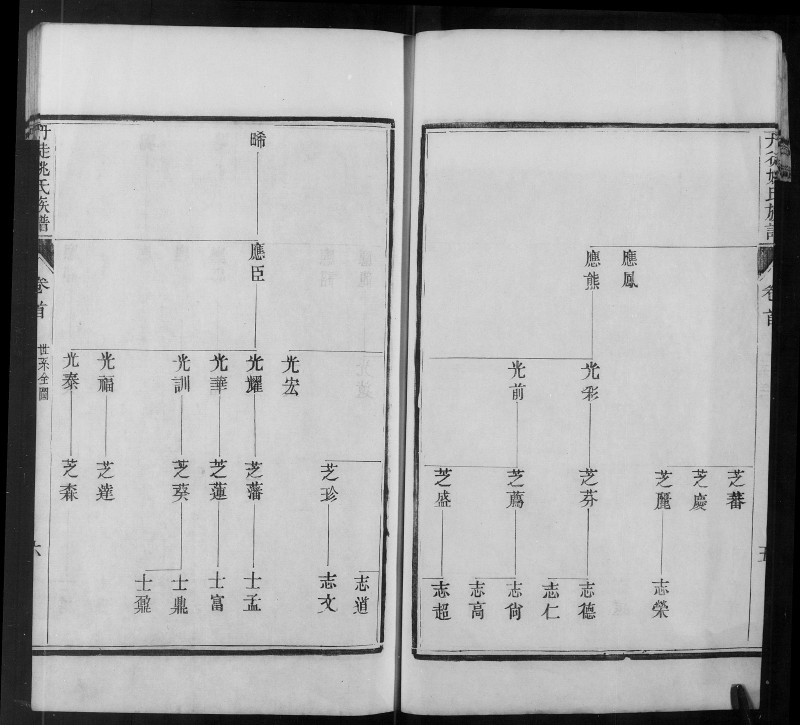 卷首
五
應鳳
應熊
光彩
光前
芝蕃
芝慶
芝麗
芝芬
芝蔿
芝盛
志榮
志德
志仁
志尙
志高
志超
晞
應臣
光宏
光耀
光華
光訓
光福
光泰
芝珍
芝藩
芝蓮
芝葵
芝達
芝森
志道
志文
士孟
士富
士鼎
士鼐
丹徒姚氏族譜
卷首
世系全圖
六